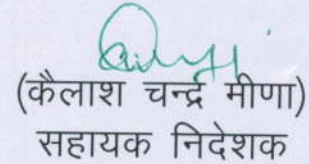 (कैलाश चन्द्र मीणा)
सहायक निदेशक